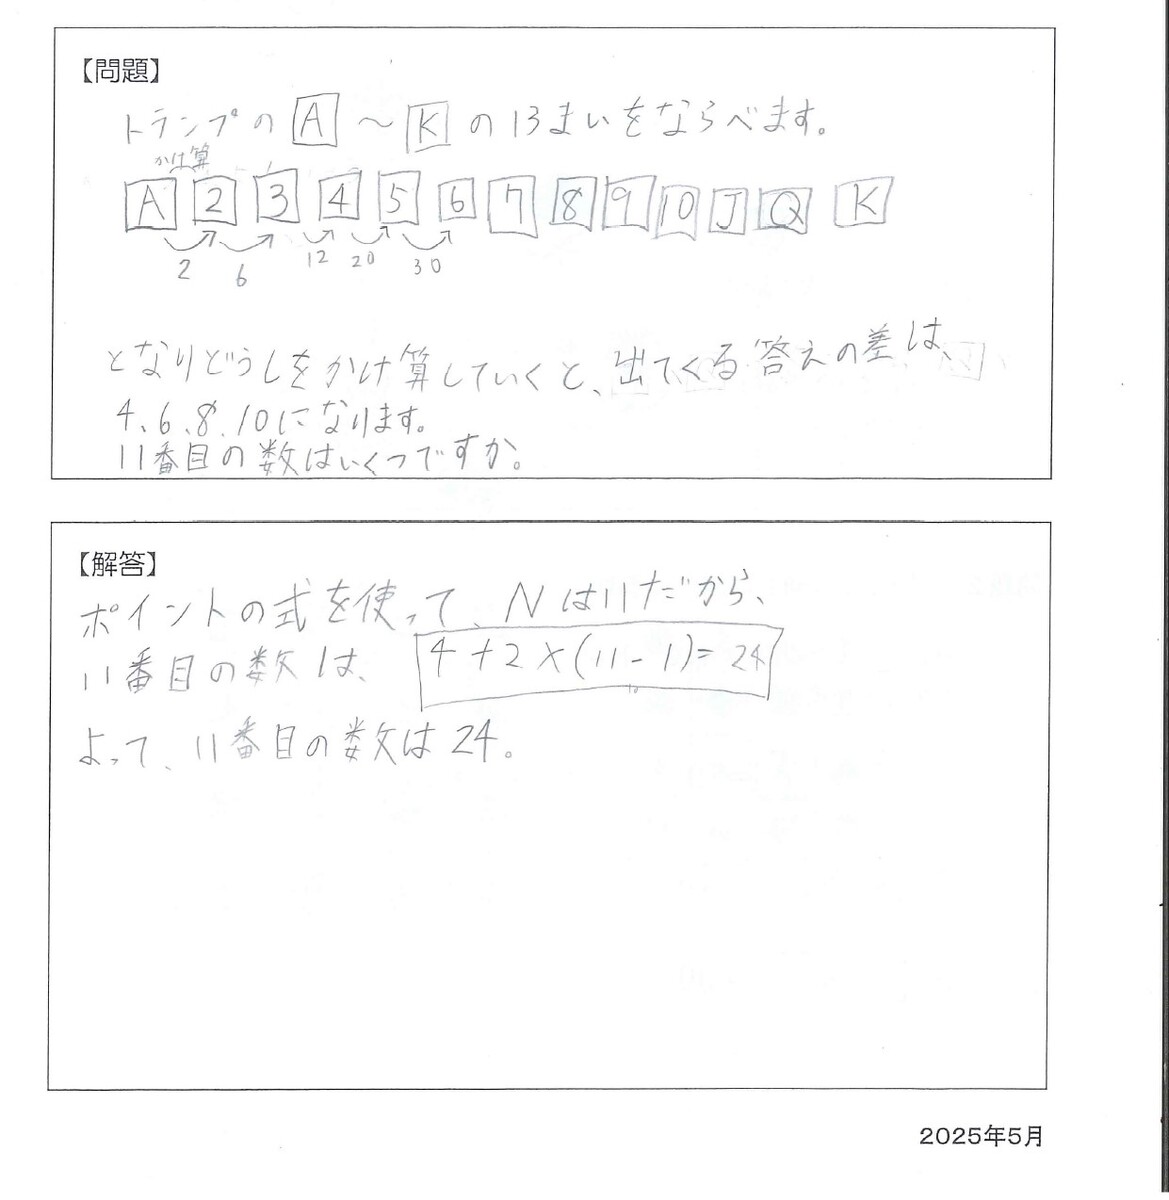 【問題】
トランプの A ～ K の13まいをならべます。
かけ算
A 2 3 4 5 6 7 8 9 10 J Q K
2 6 12 20 30
となりどうしをかけ算していくと、出てくる答えの差は、
4、6、8、10になります。
11番目の数はいくつですか。
【解答】
ポイントの式を使って、Nは11だから、
11番目の数は、 4+2×(11-1)=24
よって、11番目の数は24。
2025年5月